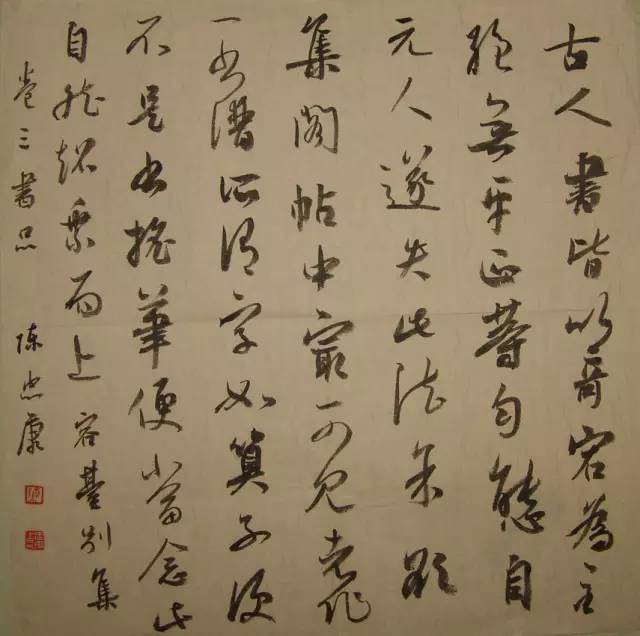 古人書皆以奇宕為主
絕無平正等勻態自
元人遂失此法余欲
集閣帖中最可見者作
一書潛所謂字如算子便
不是書筆便當念此
自然超乘而上 容臺別集
卷三書品 陳忠康